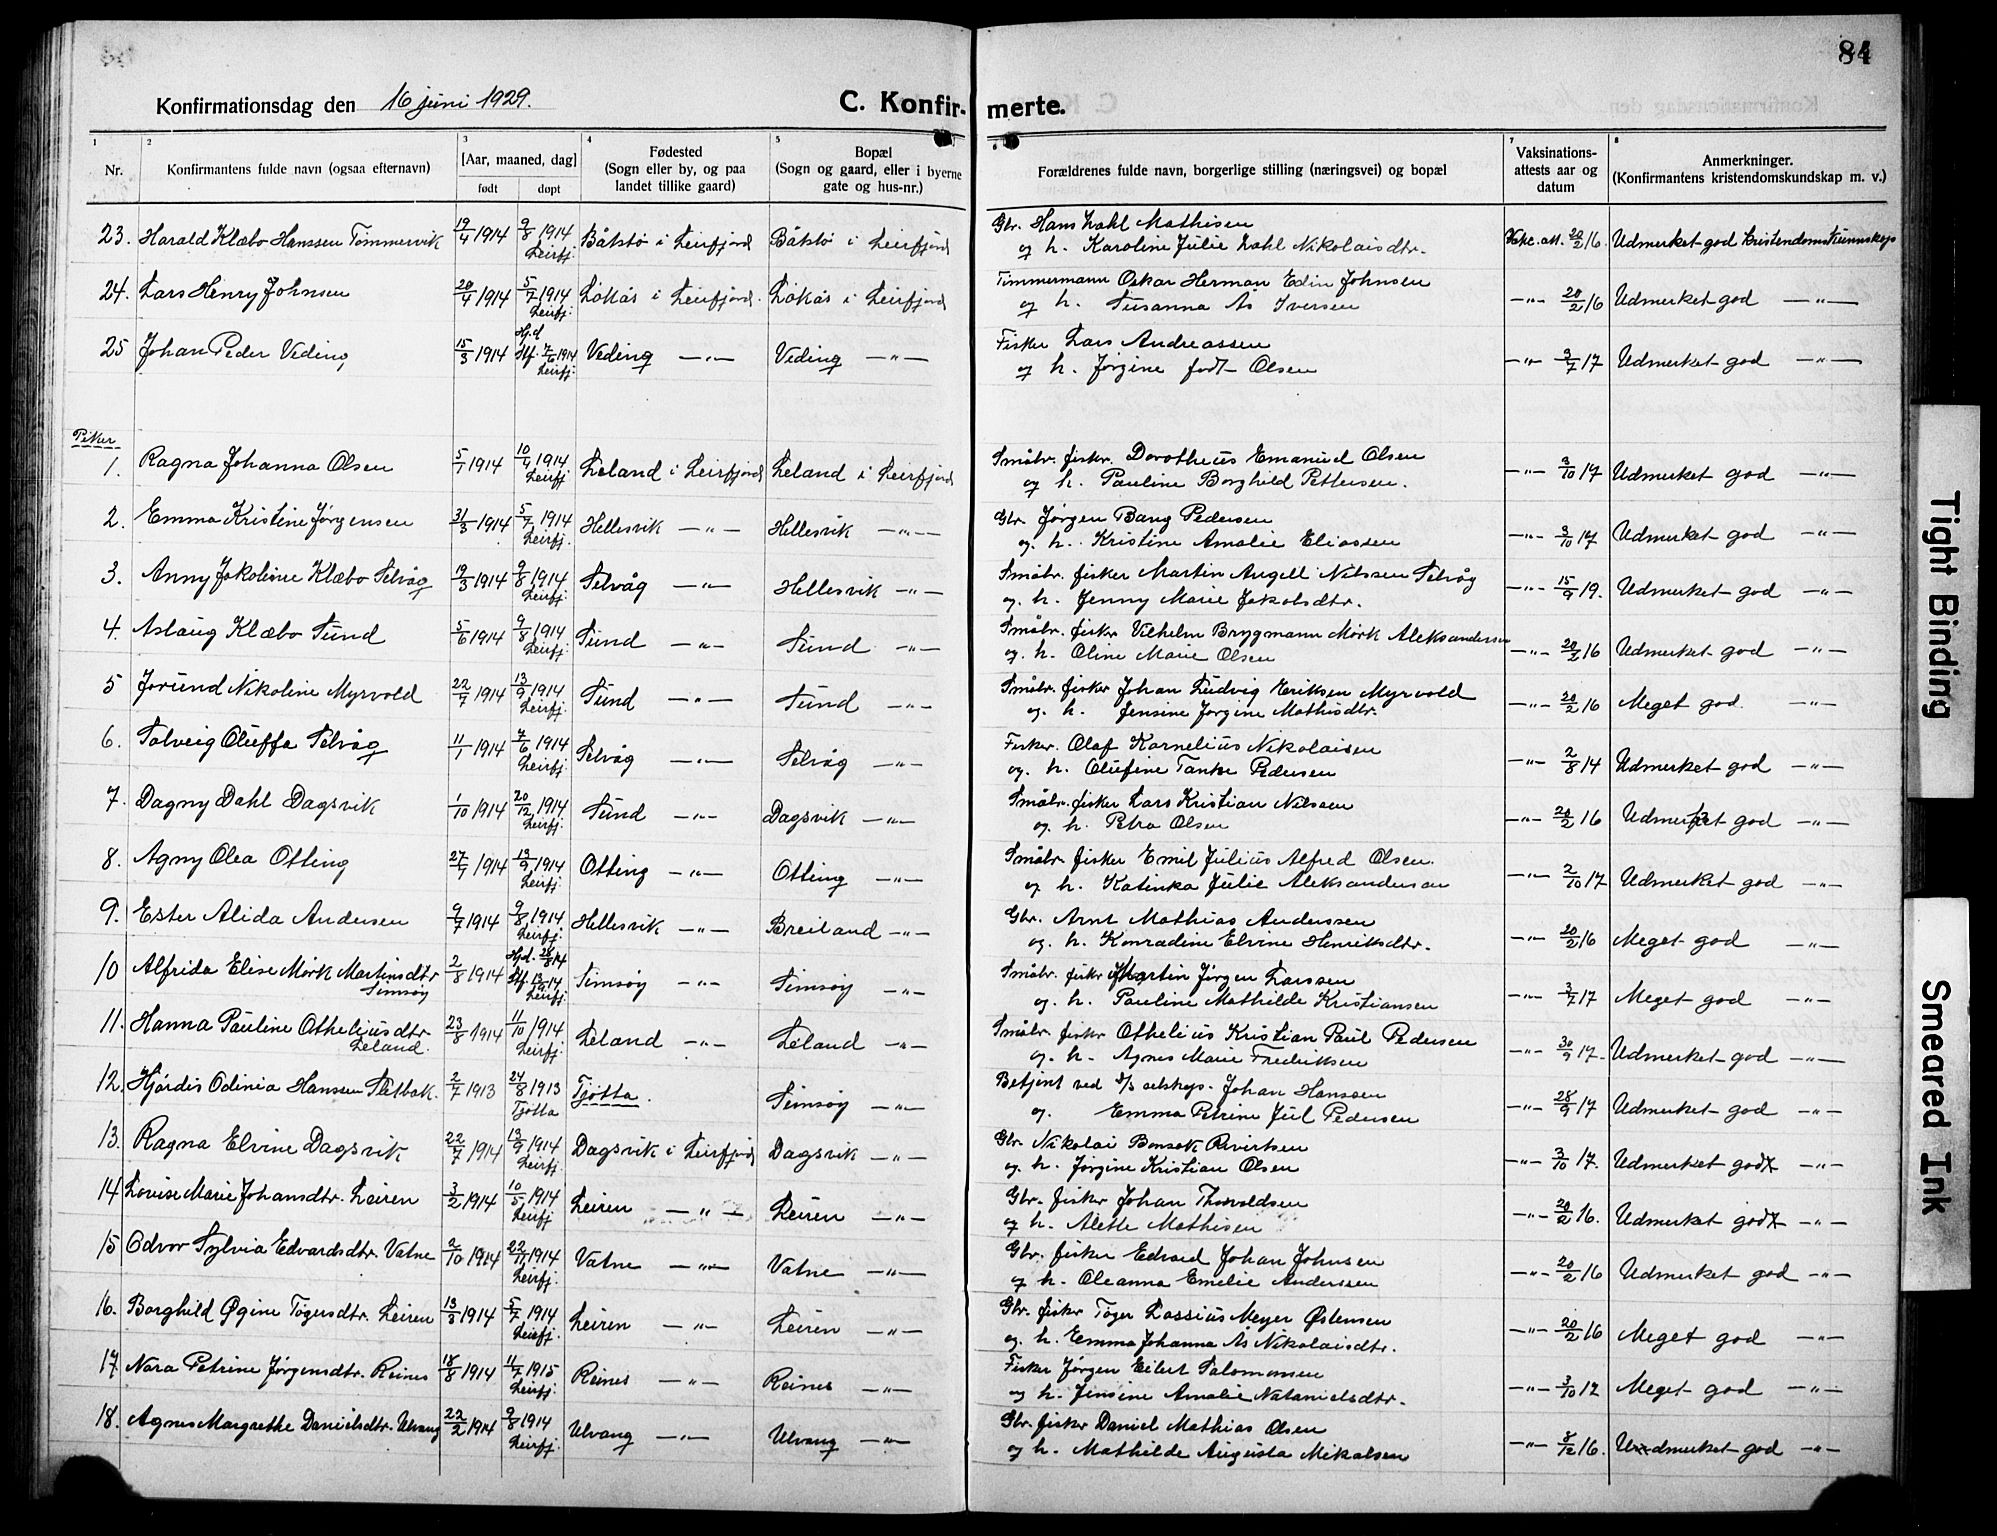 84
Konfirmationsdag den 16 juni 1929.
C. Konfir- merte.
1 2 3 4 5 6 7 8
Nr. Konfirmantens fulde navn (ogsaa efternavn) [Aar, maaned, dag] født døpt Fødested (Sogn eller by, og paa landet tillike gaard) Bopæl (Sogn og gaard, eller i byerne gate og hus-nr.) Forældrenes fulde navn, borgerlige stilling (næringsvei) og bopæl Vaksinations-attests aar og datum Anmerkninger. (Konfirmantens kristendomskundskap m. v.)
23. Harald Klæbo Hanssen Tømmervik 19/4 1914 9/8 1914 Leirfj. Båtstø i Leirfjord Båtstø i Leirfjord Gbr. Hans Dahl Mathisen
og h. Karoline Julie Dahl Nikolaisdtr. Vakc. att. 20/2 16. Udmerket god kristendomskunnskap
24. Lars Henry Johnsen 20/4 1914 5/7 1914 Leirfj. Løkås i Leirfjord. Løkås i Leirfjord Timmermann Oskar Herman Edin Johnsen
og h. Susanna Ås Iversen —"— 20/2 16 Udmerket god —"—
25 Johan Peder Veding 15/3 1914 Hj.d. Stf. 7/6 1914 Leirfj. Veding —"— Veding —"— Fisker Lars Andreassen
og h. Jørgine født Olsen —"— 3/7 17 Udmerket god —"—
Piker
1. Ragna Johanna Olsen 5/1 1914 10/4 1914 Leirfj Leland i Leirfjord Leland i Leirfjord Småbr. fisker. Dorotheus Emanuel Olsen
og h. Pauline Borghild Pettersen. —"— 3/10 17 Udmerket god —"—
2. Emma Kristine Jørgensen 31/3 1914 5/7 1914 Leirfj. Hellesvik —"— Hellesvik —"— Gbr. Jørgen Bang Pedersen
og h. Kristine Amalie Eliassen —"— 3/10 17 Udmerket god —"—
3. Anny Jakobine Klæbo Selvåg 19/3 1914 9/8 1914 Leirfj. Selvåg —"— Hellesvik —"— Småbr. fisker Martin Angell Nilssen Selvåg
og h. Jenny Marie Jakobsdtr. —"— 15/9 19. Udmerket god —"—
4. Aslaug Klæbo Sund 5/6 1914 9/8 1914 Leirfj. Sund —"— Sund —"— Småbr. fisker Vilhelm Brygmann Mørk Aleksandersen
og h. Oline Marie Olsen —"— 20/2 16 Udmerket god —"—
5 Jorund Nikoline Myrvold 22/7 1914 13/9 1914 Leirfj. Sund —"— Sund —"— Småbr. fisker Johan Ludvig Eriksen Myrvold
og h. Jensine Jørgine Mathisdtr. —"— 20/2 16 Meget god —"—
6. Solveig Oluffa Selvåg 11/1 1914 7/6 1914 Leirfj. Selvåg —"— Selvåg —"— Fisker. Olaf Kornelius Nikolaisen
og h. Olufine Tanke Pedersen —"— 2/8 14 Udmerket god —"—
7. Dagny Dahl Dagsvik 1/10 1914 20/12 1914 Leirfj. Sund —"— Dagsvik —"— Småbr. fisker Lars Kristian Nilssen
og h. Petra Olsen —"— 20/2 16 Udmerket god —"—
8. Agny Olea Otting 27/7 1914 13/9 1914 Leirfj. Otting —"— Otting —"— Småbr. fisker Emil Julius Alfred Olsen.
og h. Katinka Julie Aleksandersen —"— 2/10 17 Udmerket god —"—
9. Ester Alida Andersen 9/7 1914 9/8 1914 Leirfj. Hellesvik —"— Breiland —"— Gbr. Arnt Mathias Anderssen
og h. Konradine Elvine Henriksdtr. —"— 20/2 16 Meget god —"—
10 Alfrida Elise Mørk Martinsdtr Simsøy 2/8 1914 Hjd. 26/8 14 Stf. 13/9 14 Leirfj Simsøy —"— Simsøy —"— Småbr. fisker Martin Jørgen Larssen
og h. Pauline Mathilde Kristiansen —"— 3/7 17 Meget god —"—
11. Hanna Pauline Otheliusdtr. Leland. 23/8 1914 11/10 1914 Leirfj. Leland —"— Leland —"— Småbr. fisker Othelius Kristian Paul Pedersen
og h. Agnes Marie Fredriksen —"— 30/9 17. Udmerket god —"—
12. Hjørdis Odinia Hanssen Sletbak. 2/7 1913 24/8 1913 Tjøtta Tjøtta. Simsøy —"— Betjent ved D/S selskap. Johan Hanssen
og Emma Petrine Jul Pedersen —"— 28/9 17 Udmerket god —"—
13. Ragna Elvine Dagsvik 22/7 1914 13/9 1914 Leirfj. Dagsvik i Leirfjord Dagsvik —"— Gbr. Nikolai Bonsak Sivertsen
og h. Jørgine Kristian Olsen —"— 3/10 17. Udmerket god —"—
14 Lovise Marie Johansdtr. Leiren 3/2 1914 10/5 1914 Leirfj Leiren —"— Leiren —"— Gbr. fisker Johan Thorvaldsen
og h. Alette Mathisen —"— 20/2 16. Udmerket god —"—
15 Odvor Sylvia Edvardsdtr. Vatne 2/10 1914 22/11 1914 Leirfj. Vatne —"— Vatne —"— Gbr. fisker Edvard Johan Johnsen
og h. Oleanna Emelie Anderssen —"— 20/2 16 Udmerket god —"—
16. Borghild Øgine Tøgersdtr. Leiren 13/3 1914 5/7 1914 Leirfj. Leiren —"— Leiren —"— Gbr. fisker Tøger Lassius Meyer Østensen
og h. Emma Johanna Ås Nikolaisdtr. —"— 20/2 16 Meget god —"—
17 Nora Petrine Jørgensdtr. Reines 18/8 1914 11/7 1915 Leirfj. Reines —"— Reines —"— Fisker Jørgen Eilert Salomonsen
og h. Jensine Amalie Natanielsdtr. —"— 3/10 17 Meget god —"—
18. Agnes Margrethe Danielsdtr. Ulvang 22/2 1914 9/8 1914 Leirfj. Ulvang —"— Ulvang —"— Gbr. fisker Daniel Mathias Olsen
og h. Mathilde Augusta Mikalsen —"— 8/12 16. Udmerket god —"—
Tight Binding
Smeared Ink